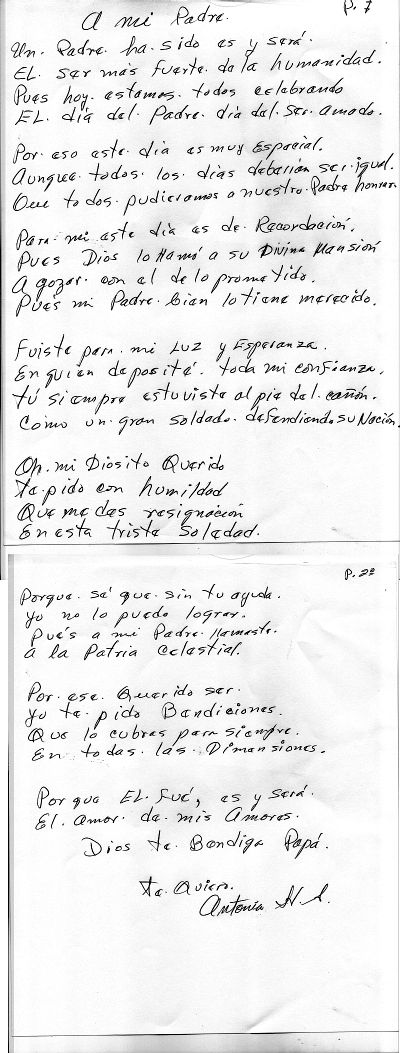 A mi Padre.
P. 1
Un. Padre ha. sido es y será.
EL ser más fuerte de la humanidad.
Pues hoy. estamos. todos celebrando
EL. día del. Padre. día del. Ser. Amado.
Por. eso este. día es muy Especial.
Aunque. todos. los. días deberían ser. igual.
Que todos. pudieramos a nuestro. Padre honrar.
Para. mi este día es de. Recordación.
Pues Dios lo llamó a su Divina Mansión
A gozar. con el de lo prometido.
Pués mi Padre. bien lo tiene merecido.
Fuiste para. mi Luz y Esperanza.
En quien deposité. toda mi confianza.
tú siempre estuviste al pie del. cañón.
Como un. gran soldado. defendiendo su Nación.
Oh. mi Diosito Querido
te pido con humildad
Que me des resignación
En esta triste Soledad.
P. 2ª
Porque. sé que. sin tu ayuda.
yo no lo puedo lograr.
Pués a mi Padre. llamaste.
a la Patria Celestial.
Por. ese. Querido ser.
Yo te. pido Bendiciones.
Que lo cubras para siempre.
En todas. las. Dimensiones.
Porque EL. Fué, es y será.
El. amor. de mis Amores.
Dios te. Bendiga Papá.
te. Quiero.
Antonia H. S.